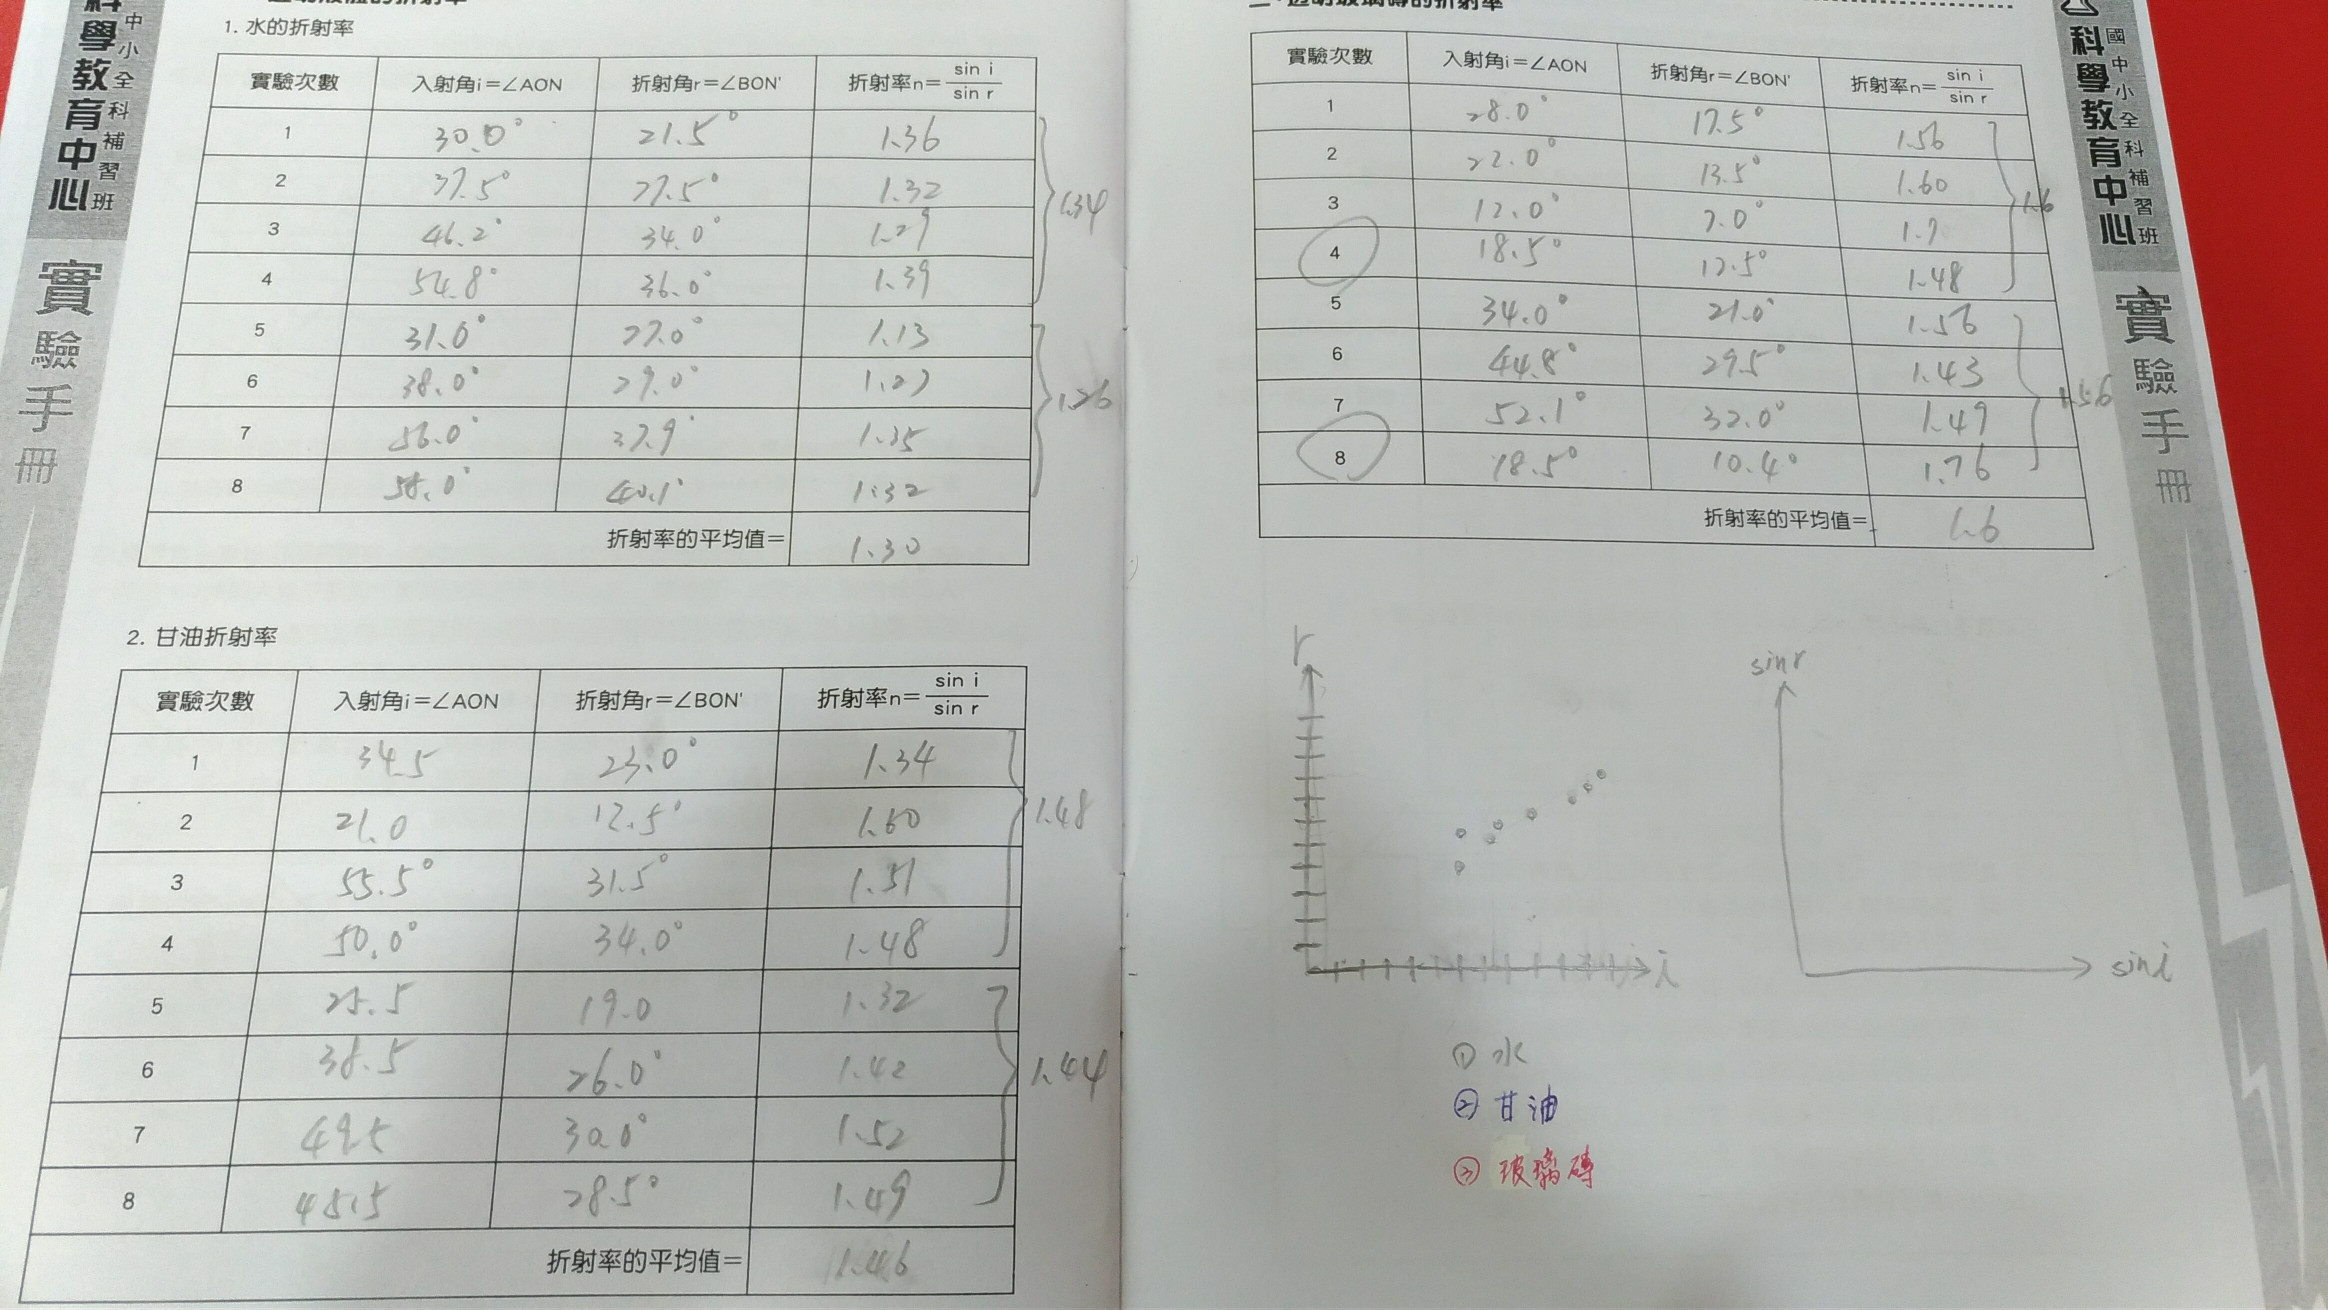 1. 水的折射率
實驗次數 入射角i=∠AON 折射角r=∠BON' 折射率n= sin i / sin r
1 30.0° 21.5° 1.36
2 37.5° 27.5° 1.32
3 46.2° 34.0° 1.29
4 54.8° 36.0° 1.39
1.34
5 31.0° 27.0° 1.13
6 38.0° 29.0° 1.27
7 56.0° 37.9° 1.35
8 58.0° 40.1° 1.32
1.26
折射率的平均值= 1.30
2. 甘油折射率
實驗次數 入射角i=∠AON 折射角r=∠BON' 折射率n= sin i / sin r
1 34.5 23.0° 1.34
2 21.0 12.5° 1.60
3 55.5° 31.5° 1.51
4 50.0° 34.0° 1.48
1.48
5 25.5 19.0 1.32
6 38.5 26.0° 1.42
7 49.5 30.0° 1.52
8 45.5 28.5° 1.49
1.44
折射率的平均值= 1.46
透明玻璃磚的折射率
實驗次數 入射角i=∠AON 折射角r=∠BON' 折射率n= sin i / sin r
1 28.0° 17.5° 1.56
2 22.0° 13.5° 1.60
3 12.0° 7.0° 1.7
4 18.5° 12.5° 1.48
1.6
5 34.0° 21.0° 1.56
6 44.8° 29.5° 1.43
7 52.1° 32.0° 1.49
8 18.5° 10.4° 1.76
1.56
折射率的平均值= 1.6
r
i
sin r
sin i
① 水
② 甘油
③ 玻璃磚
科學教育中心
中小全科補習班
實驗手冊
科學教育中心
國中小全科補習班
實驗手冊